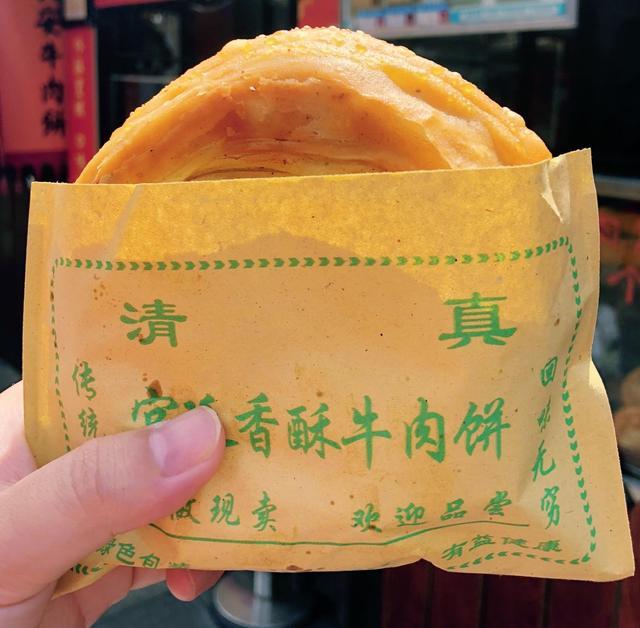 安牛肉餅
清 真
传统
宫廷香酥牛肉饼
回味无穷
做现卖 欢迎品尝
绿色包装
有益健康